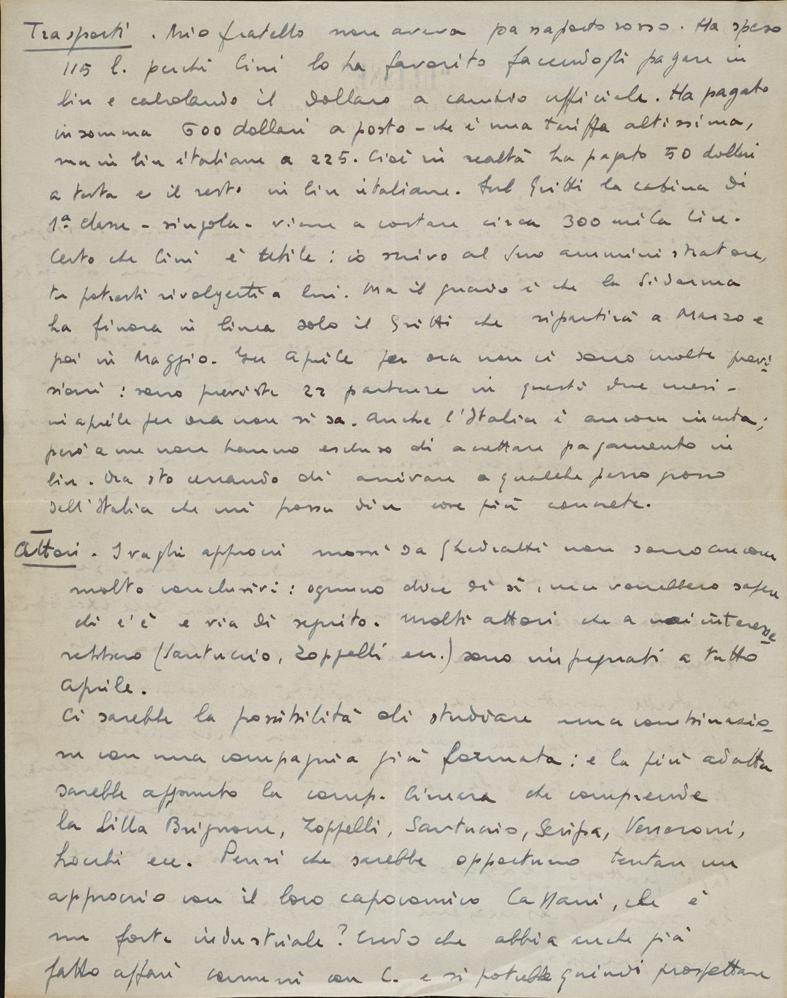 Trasporti. Mio fratello non aveva passaporto rosso. Ha speso
115 l. perché Cini lo ha favorito facendogli pagare in
lire e calcolando il dollaro a cambio ufficiale. Ha pagato
insomma 600 dollari a posto - che è una tariffa altissima,
ma in lire italiane a 225. Cioè in realtà ha pagato 50 dollari
a testa e il resto in lire italiane. Sul Gritti la cabina di
1ª classe - singola - viene a costare circa 300 mila lire.
Certo che Cini è utile: io scrivo al suo amministratore,
tu potresti rivolgerti a lui. Ma il guaio è che la Sidarma
ha finora in linea solo il Gritti che ripartirà a Marzo e
poi in Maggio. In Aprile per ora non ci sono molte previ
sioni: sono previste 22 partenze in questi due mesi -
in aprile per ora non si sa. Anche l'Italia è ancora incerta;
però a me non hanno escluso di accettare pagamento in
lire. Ora sto cercando di arrivare a qualche pezzo grosso
dell'Italia che mi possa dire cose più concrete.
Attori. I vaghi approcci mossi da Ghedratti non sono ancora
molto conclusivi: ognuno dice di sì, ma vorrebbero sapere
chi c'è e via di seguito. Molti attori che a noi interesse
rebbero (Santuccio, Zoppelli ecc.) sono impegnati a tutto
Aprile.
Ci sarebbe la possibilità di studiare una combinazio
ne con una compagnia già formata: e la più adatta
sarebbe appunto la comp. Cimara che comprende
la Lilla Brignone, Zoppelli, Santuccio, Scelpa, Venceroni,
ecc. Pensi che sarebbe opportuno tentare un
approccio con il loro capocomico Cappani, che è
un forte industriale? Credo che abbia anche già
fatto affari comuni con C. e si potrebbe quindi prospettare